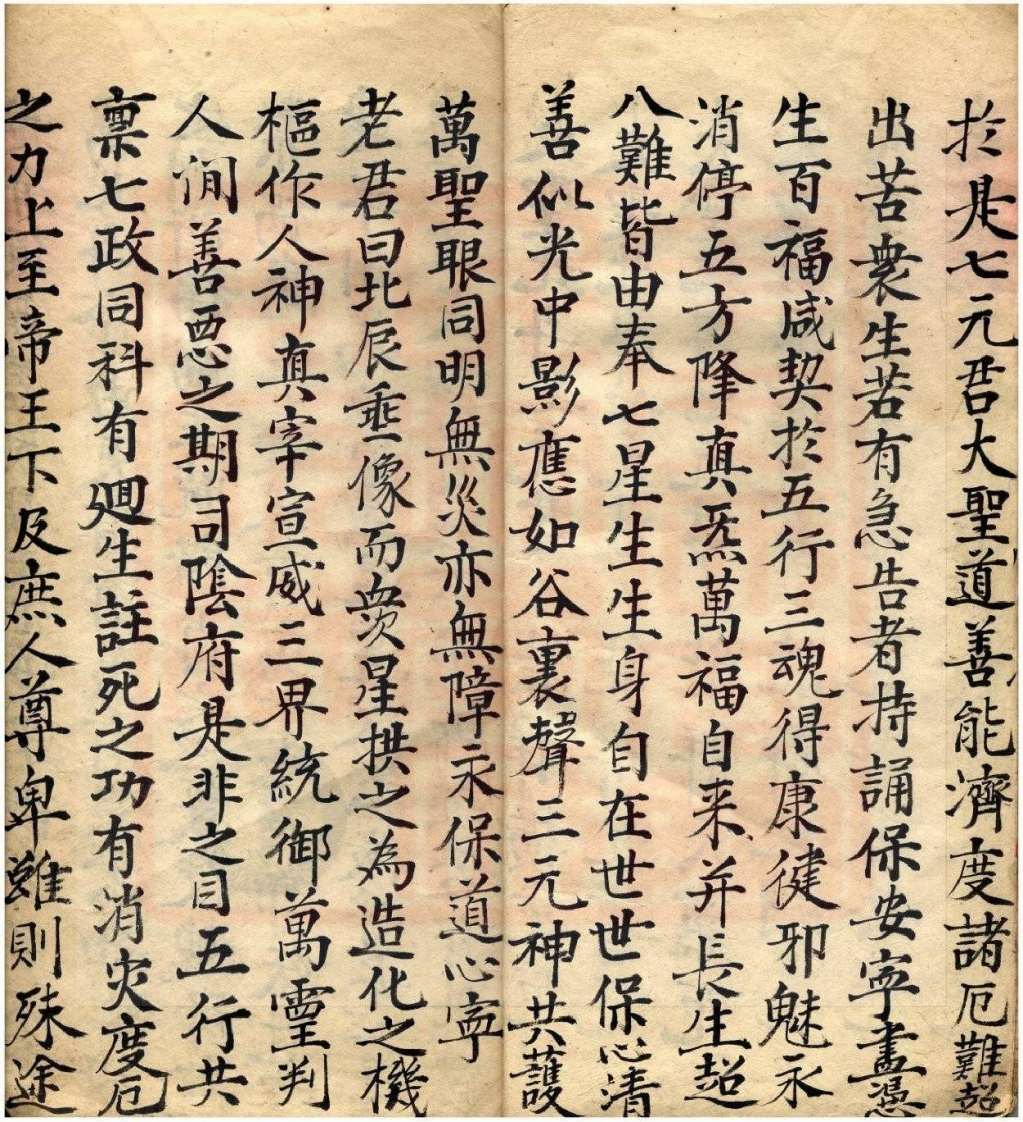 於是七元君大聖道善能濟度諸厄難超
出苦衆生若有急告者持誦保安寧盡憑
生百福咸契於五行三魂得康健邪魅永
消停五方降真炁萬福自来并長生超
八難皆由奉七星生生身自在世世保心清
善似光中影應如谷裏聲三元神共護
萬聖眼同明無災亦無障永保道心寧
老君曰北辰垂像而衆星拱之為造化之機
樞作人神真宰宣威三界統御萬霊判
人間善惡之期司陰府是非之目五行共
禀七政同科有廻生註死之功有消灾度厄
之力上至帝王下及庶人尊卑雖則殊途